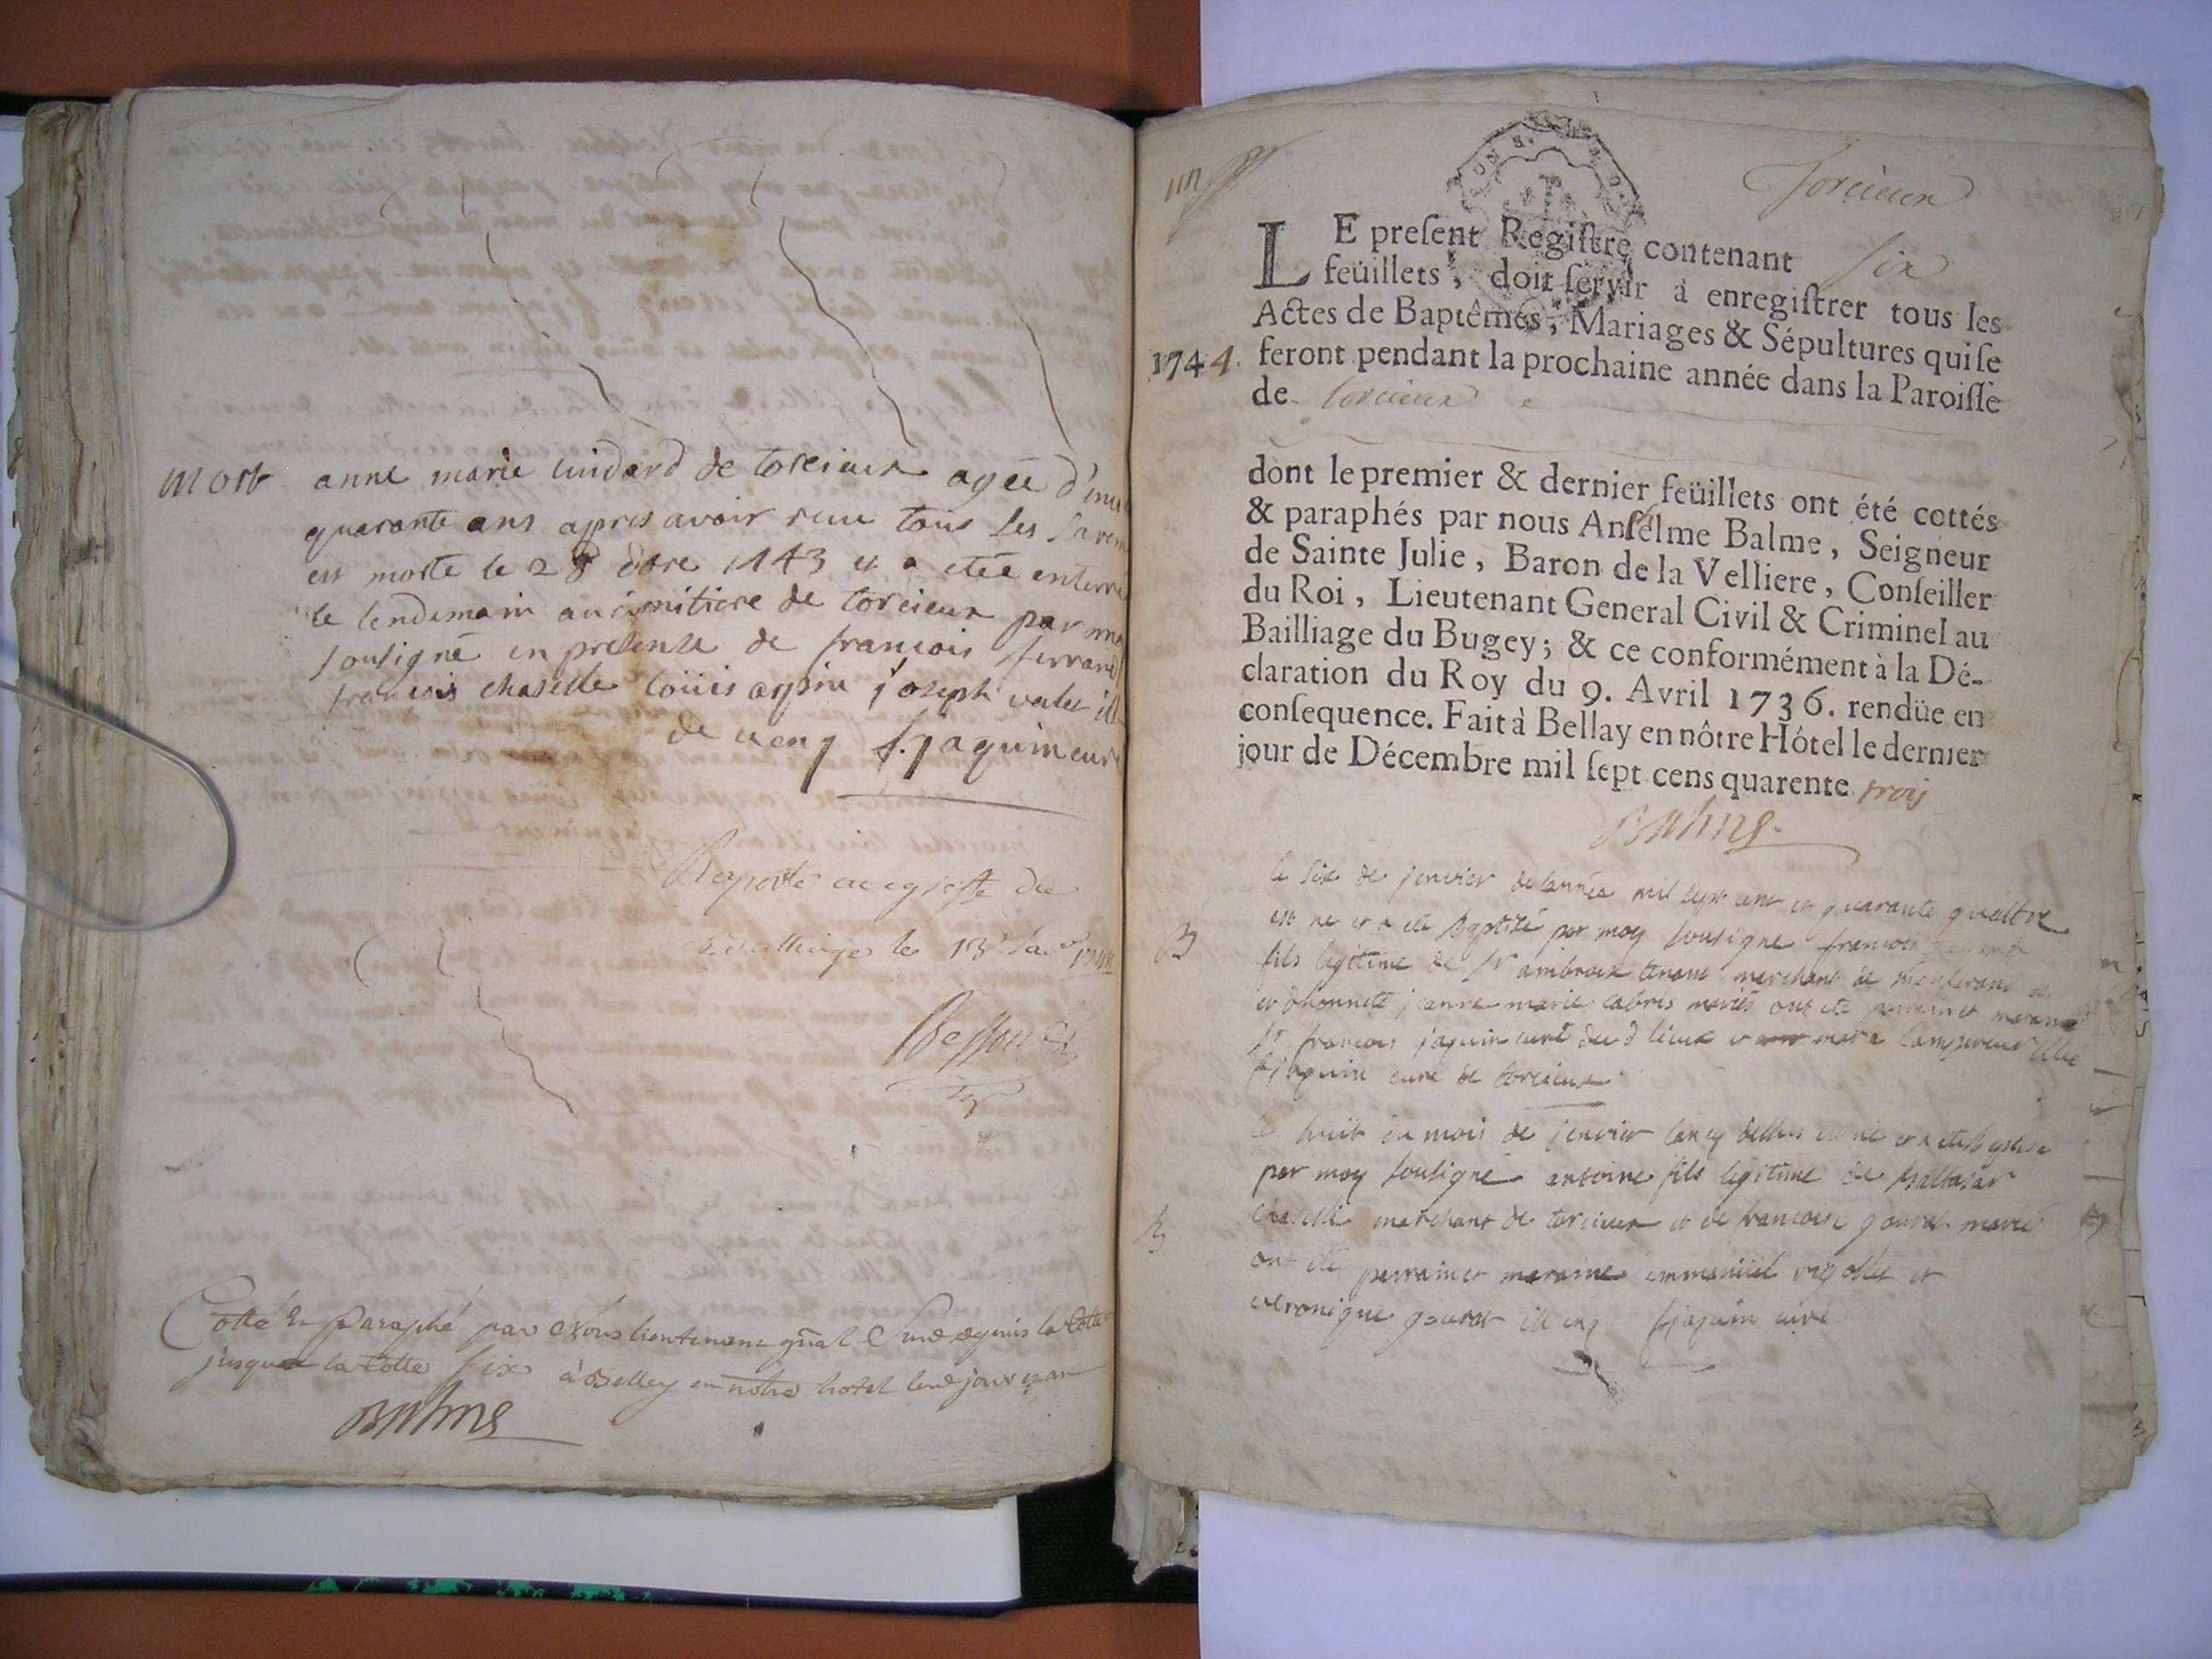 mort
anne marie cuidard de torcieux agée d'envi
quarante ans apres avoir reçu tous les sacrem
est morte le 28 8bre 1743 et a etée enterré
le lendemain au cimitiere de torcieux par moy
sousigné en presence de francois ferrand
francois chaselle loüis arpin joseph valet ill
de ce enq f. jaquin curé
Raporté au greffe du
Bailliage le 13e Janvr 1744
Cotté & Paraphé par Nous lieutenant gñal Susd depuis la Cotte
jusques la Cotte six à Belley en notre hotel led jour et an
Balme
un
Torcieux
LE present Registre contenant six
feüillets, doit servir à enregistrer tous les
Actes de Baptêmes, Mariages & Sépultures qui se
1744. feront pendant la prochaine année dans la Paroisse
de Torcieux
dont le premier & dernier feüillets ont été cottés
& paraphés par nous Anselme Balme, Seigneur
de Sainte Julie, Baron de la Velliere, Conseiller
du Roi, Lieutenant General Civil & Criminel au
Bailliage du Bugey; & ce conformément à la Dé-
claration du Roy du 9. Avril 1736. rendüe en
consequence. Fait à Bellay en nôtre Hôtel le dernier
jour de Décembre mil sept cens quarente trois
Balme
le six de jenvier de lannée mil sept cent et quarante quattre
B
est ne et a ete baptisé par moy sousigne francois
fils legitime de sr ambroix tenant marchant de
et dhonnete jeanne marie cabris mariés ont ete parrain et maraine
sr francois jaquin curé dud lieux et lampereur
fjaquin curé de torcieux
le huit du mois de jenvier lan dessus est né et a ete baptisé
par moy sousigné antoine fils legitime de baltasar
B
chaselle marchant de torcieux et de francoise gourat marié
ont ete parrain et maraine emmanüel vigollet et
veronique gourat ill enq fjaquin curé